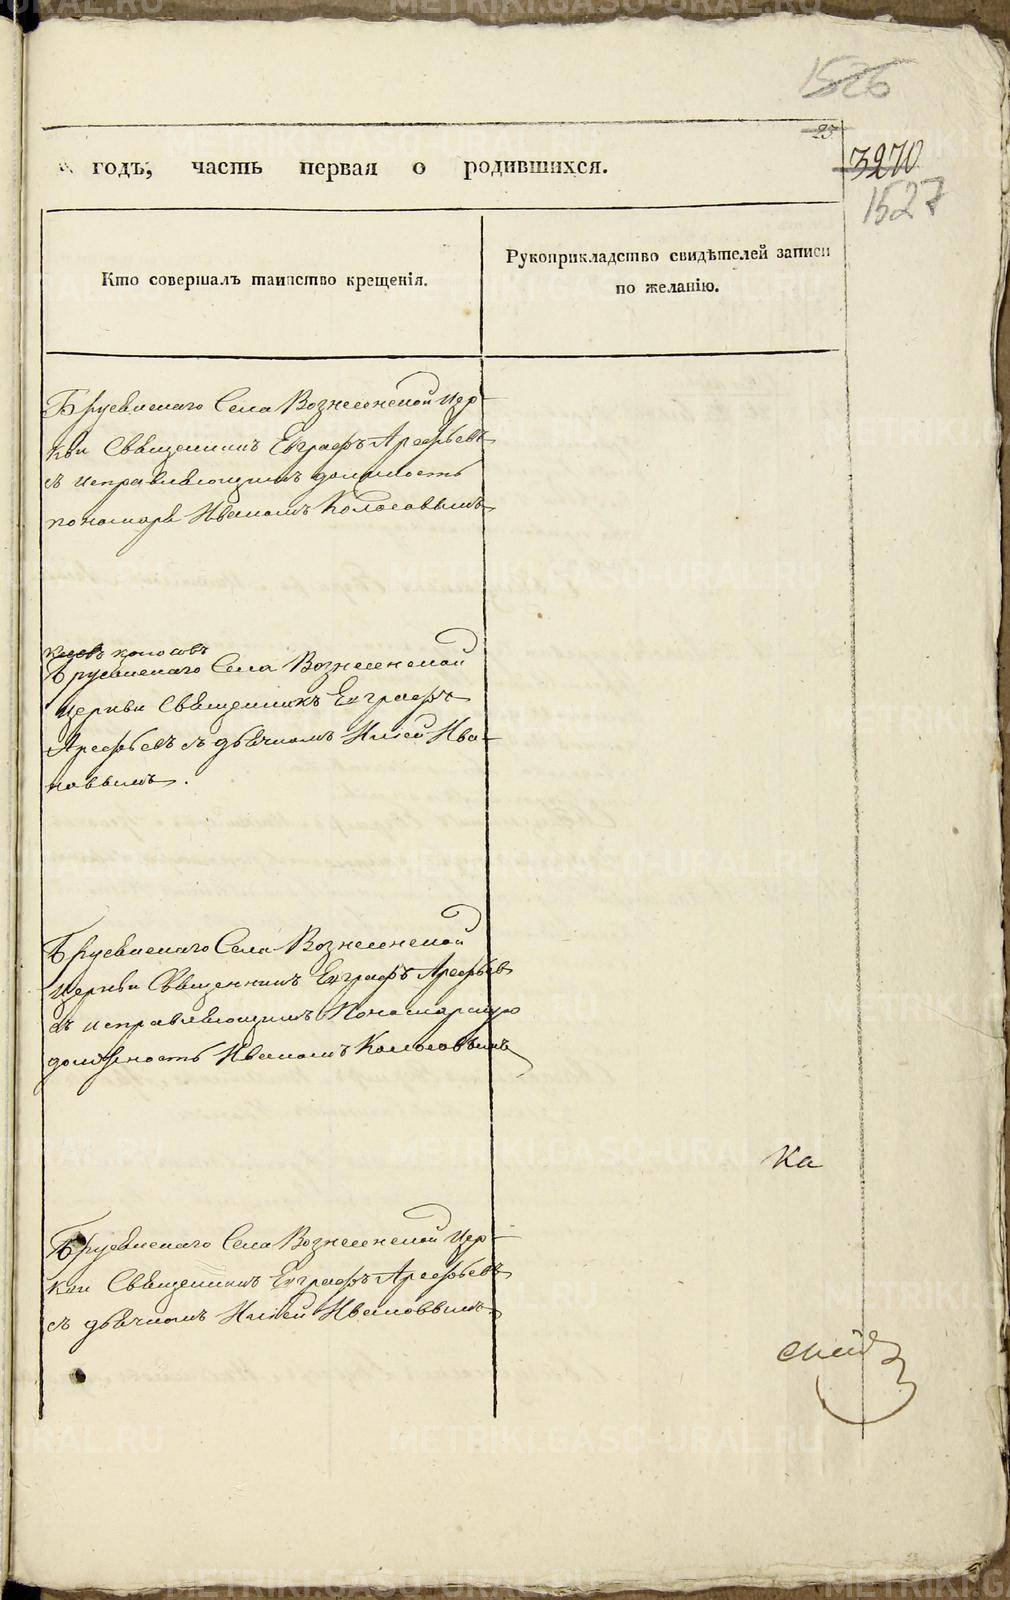 1526
23
годъ, часть первая о родившихся.
3270
1527
Кто совершалъ таинство крещенія.
Рукоприкладство свидѣтелей записи
по желанію.
Брусянскаго Села Вознесенской Цер-
кви Священникъ Евграфъ Арефьевъ
съ исправляющимъ должность
пономаря Иваномъ Колосовымъ
Брусянскаго Села Вознесенской
Церкви Священникъ Евграфъ
Арефьевъ съ дьячкомъ Ильей Ива-
новымъ.
Брусянскаго Села Вознесенской
Церкви Священникъ Евграфъ Арефьевъ
съ исправляющимъ Пономарскую
должность Иваномъ Колосовымъ
Ка
Брусянскаго Села Вознесенской Цер-
кви Священникъ Евграфъ Арефьевъ
съ дьячкомъ Ильей Ивановымъ
METRIKI.GASO-URAL.RU